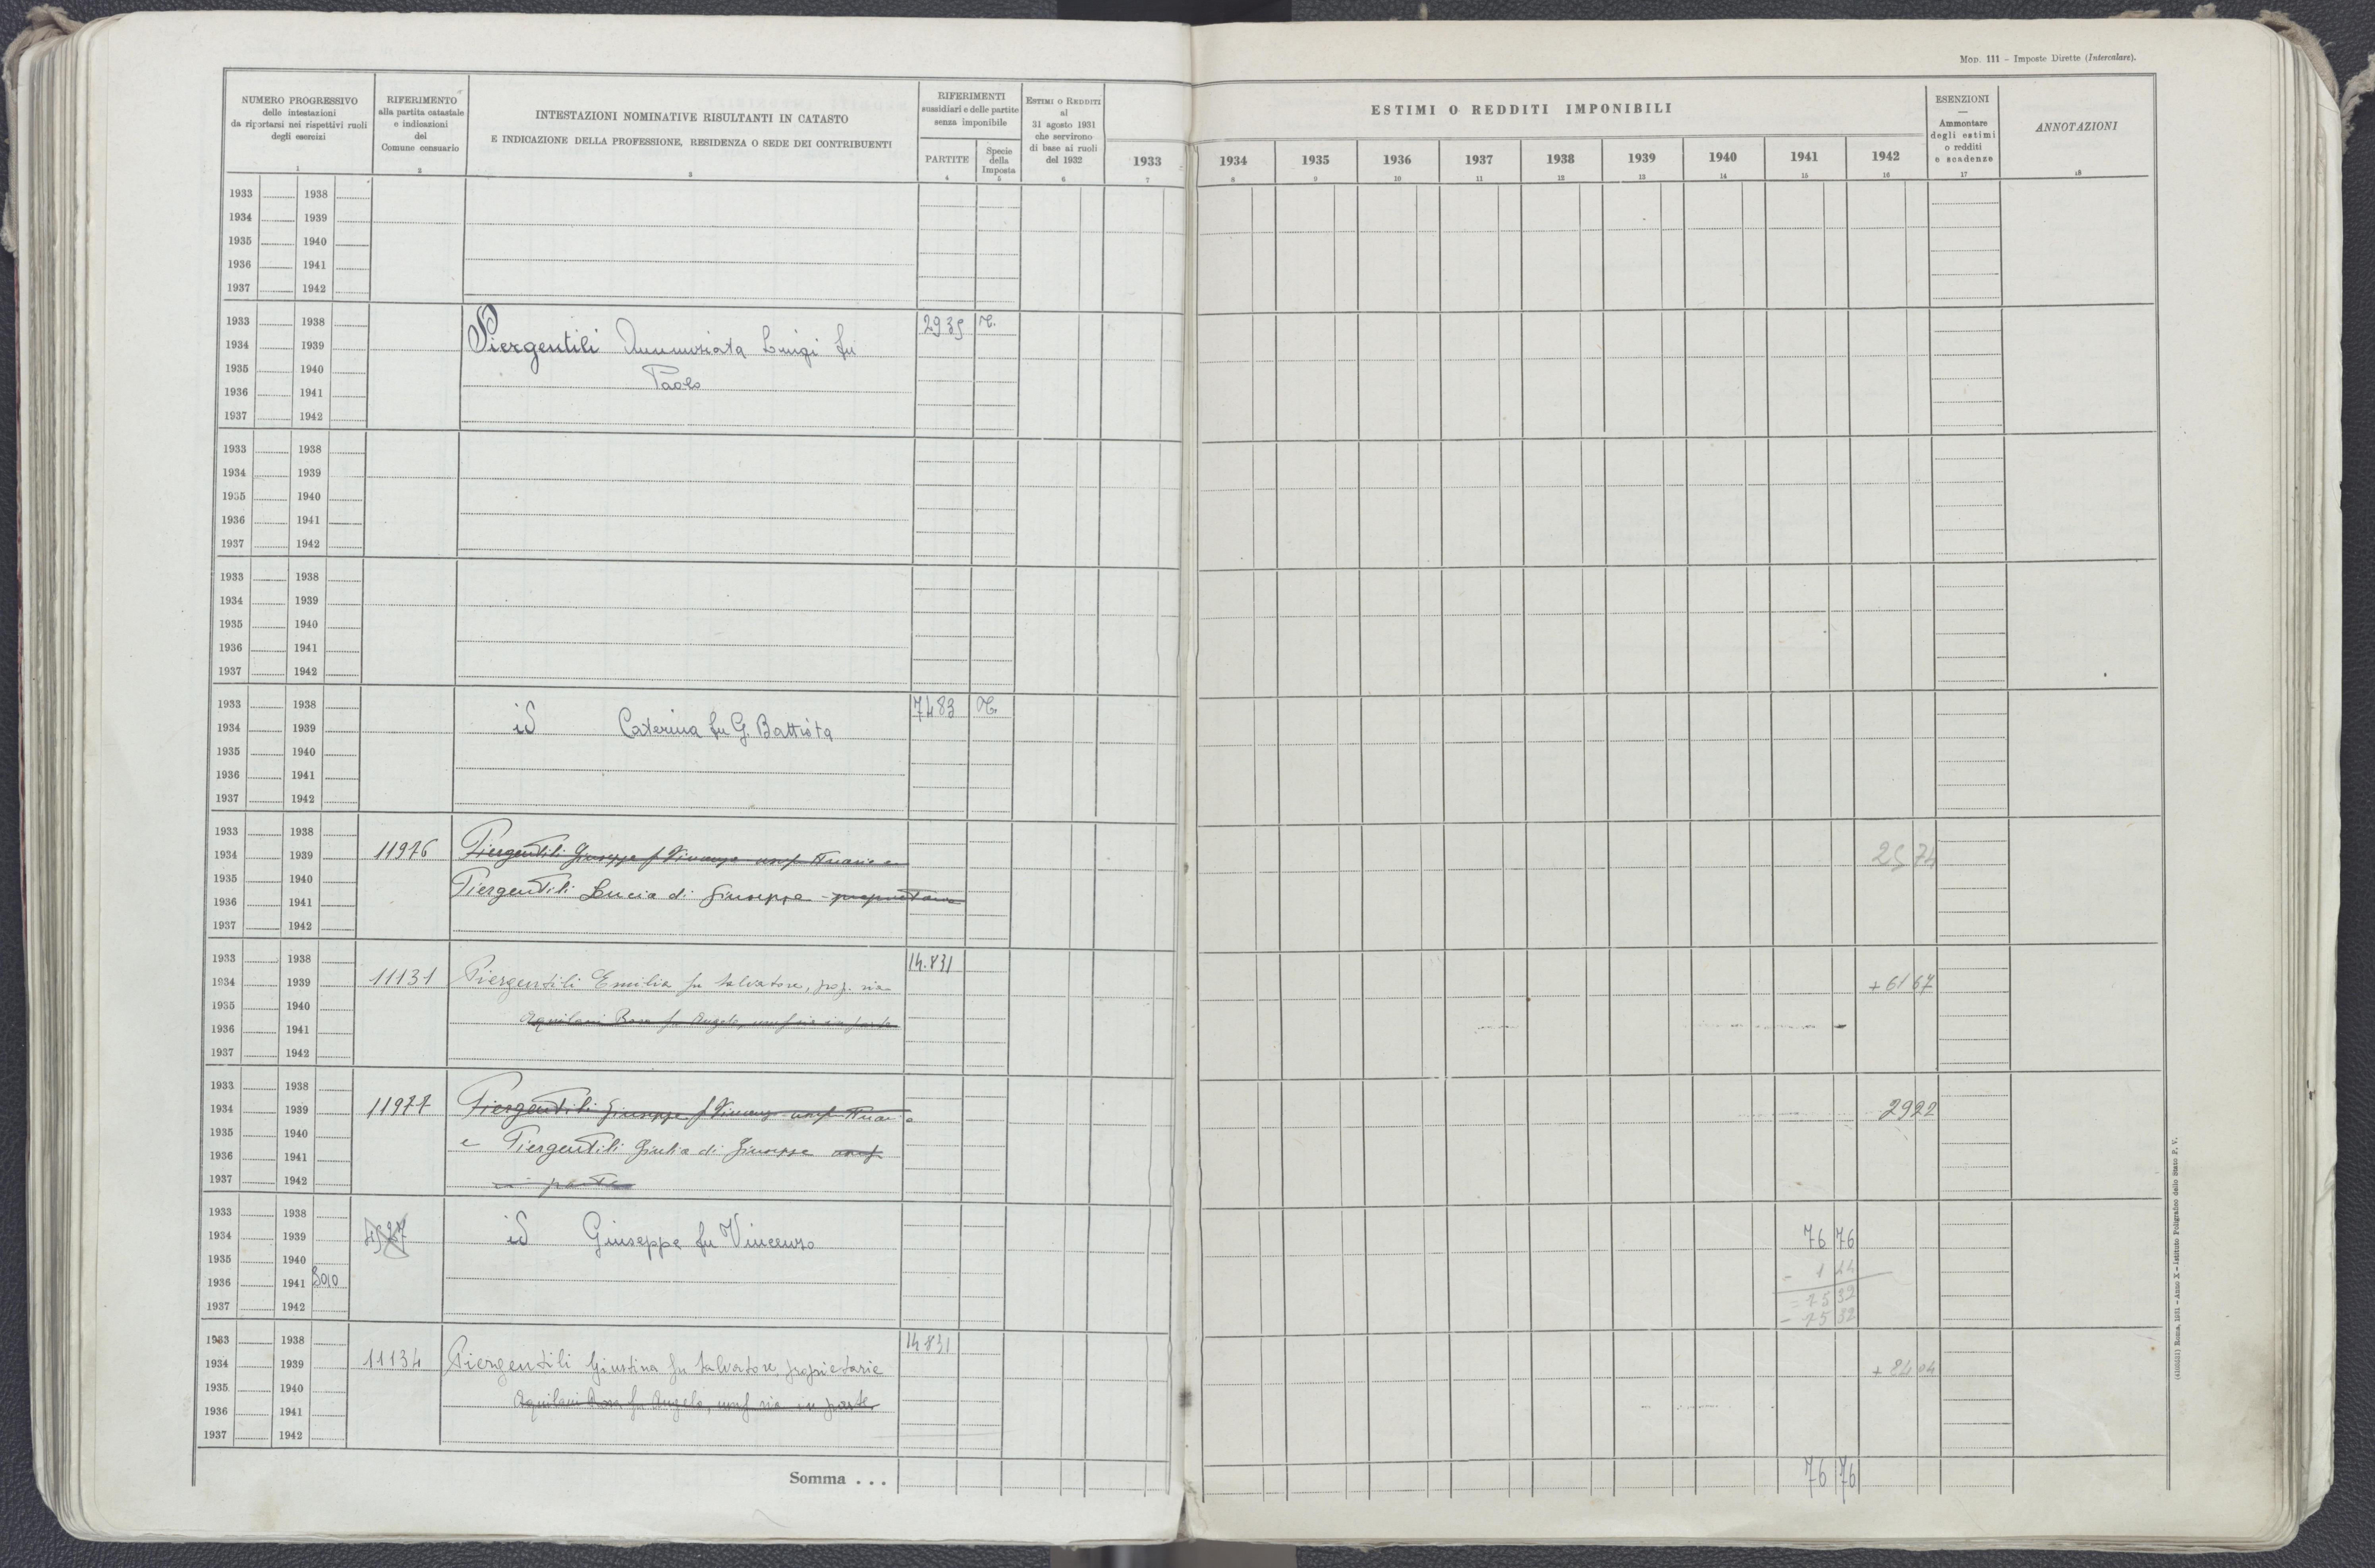 MOD. 111 - Imposte Dirette (Intercalare).
NUMERO PROGRESSIVO
delle intestazioni
da riportarsi nei rispettivi ruoli
degli esercizi
1
RIFERIMENTO
alla partita catastale
e indicazioni
del
Comune censuario
2
INTESTAZIONI NOMINATIVE RISULTANTI IN CATASTO
E INDICAZIONE DELLA PROFESSIONE, RESIDENZA O SEDE DEI CONTRIBUENTI
3
RIFERIMENTI
sussidiari e delle partite
senza imponibile
PARTITE
4
Specie
della
Imposta
5
ESTIMI O REDDITI
al
31 agosto 1931
che servirono
di base ai ruoli
del 1932
6
ESTIMI O REDDITI IMPONIBILI
1933 1934 1935 1936 1937 1938 1939 1940 1941 1942
7 8 9 10 11 12 13 14 15 16
ESENZIONI
Ammontare
degli estimi
o redditi
e scadenze
17
ANNOTAZIONI
18
1933 1938
1934 1939
1935 1940
1936 1941
1937 1942
1933 1938 2935
1934 1939 Piergentili Annunziata Luigi fu
1935 1940 Paolo
1936 1941
1937 1942
1933 1938
1934 1939
1935 1940
1936 1941
1937 1942
1933 1938
1934 1939
1935 1940
1936 1941
1937 1942
1933 1938 7483
1934 1939 id Caterina fu G. Battista
1935 1940
1936 1941
1937 1942
1933 1938
1934 1939 11976 Piergentili Giuseppe f Vincenzo usuf 25 74
1935 1940
1936 1941 Piergentili Lucia di Giuseppe - proprietaria
1937 1942
1933 1938 14.831
1934 1939 11131 Piergentili Emilia fu Salvatore, prop. ria + 61 67
1935 1940
1936 1941 Aquilani Rosa fu Angelo, usuf ria in parte
1937 1942
1933 1938
1934 1939 11977 Piergentili Giuseppe f Vincenzo usuf 29 22
1935 1940
1936 1941 e Piergentili Giulia di Giuseppe usuf
1937 1942 in parte
1933 1938
1934 1939 id Giuseppe fu Vincenzo 76 76
1935 1940
1936 1941 3010 - 1 44
1937 1942 = 75 32
- 75 32
1933 1938 14831
1934 1939 11134 Piergentili Giustina fu Salvatore, proprietaria + 84 04
1935 1940
1936 1941 Aquilani Rosa fu Angelo, usuf ria in parte
1937 1942
Somma . . . 76 76
(4102551) Roma, 1931 - Anno X - Istituto Poligrafico dello Stato P. V.